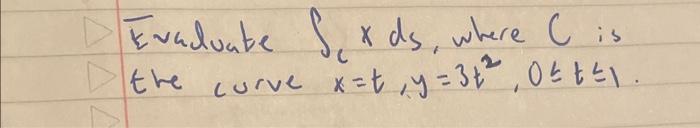 Evaluate ∫_C x ds, where C is
the curve x = t, y = 3t², 0 ≤ t ≤ 1.